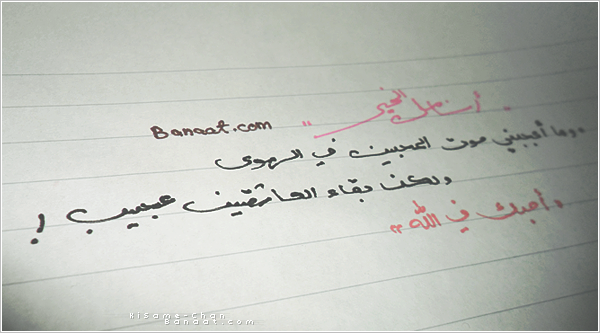 Banaat.com
وما أعجبني موت المحبين في الهوى
ولكن بقاء العاشقين عجيب !
أحبك في الله
KiSame-Chan
Banaat.com